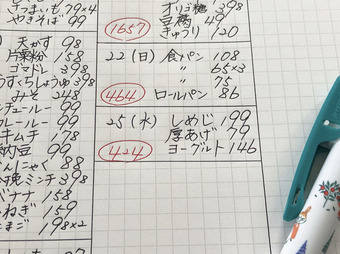 さつまいも 79×4
やきそば 99
天かす 98
片栗粉 158
ゴマドレ 398
うすくちしょうゆ 398
みそ 248
シチュールー 99
カレールー 99
キムチ 178
納豆 99
こんにゃく 88
挽ミンチ 398
バナナ 158
ねぎ 159
たまご 198×2
オリゴ糖 398
豆腐 49
きゅうり 120
1657
22(日) 食パン 108
〃 65×3
〃 75
464 ロールパン 86
25(水) しめじ 199
厚あげ 79
424 ヨーグルト 146